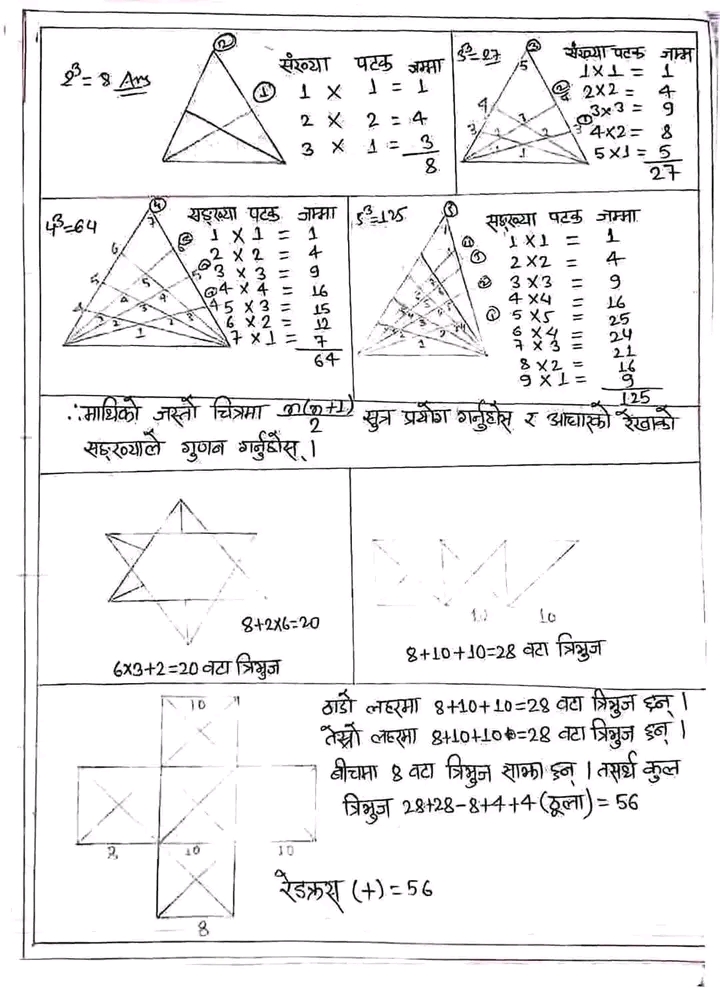 2³=8 Ans
संख्या पटक जम्मा
1 × 1 = 1
2 × 2 = 4
3 × 1 = 3
8
3³=27
संख्या पटक जम्म
1×1 = 1
2×2 = 4
3×3 = 9
4×2 = 8
5×1 = 5
27
4³=64
सङ्ख्या पटक जम्मा
1 × 1 = 1
2 × 2 = 4
3 × 3 = 9
4 × 4 = 16
5 × 3 = 15
6 × 2 = 12
7 × 1 = 7
64
5³=125
सङ्ख्या पटक जम्मा
1 × 1 = 1
2 × 2 = 4
3 × 3 = 9
4 × 4 = 16
5 × 5 = 25
6 × 4 = 24
7 × 3 = 21
8 × 2 = 16
9 × 1 = 9
125
∴माथिको जस्तो चित्रमा n(n+1)/2 सुत्र प्रयोग गर्नुहोस् र आधारको रेखाको
सङ्ख्याले गुणन गर्नुहोस् ।
8+2×6=20
6×3+2=20 वटा त्रिभुज
10 10
8+10+10=28 वटा त्रिभुज
10
8 10 10
8
ठाडो लहरमा 8+10+10=28 वटा त्रिभुज छन् ।
तेस्रो लहरमा 8+10+10=28 वटा त्रिभुज छन् ।
बीचमा 8 वटा त्रिभुज साझा छन् । तसर्थ कुल
त्रिभुज 28+28-8+4+4 (ठूला) = 56
रेडक्रस (+) = 56